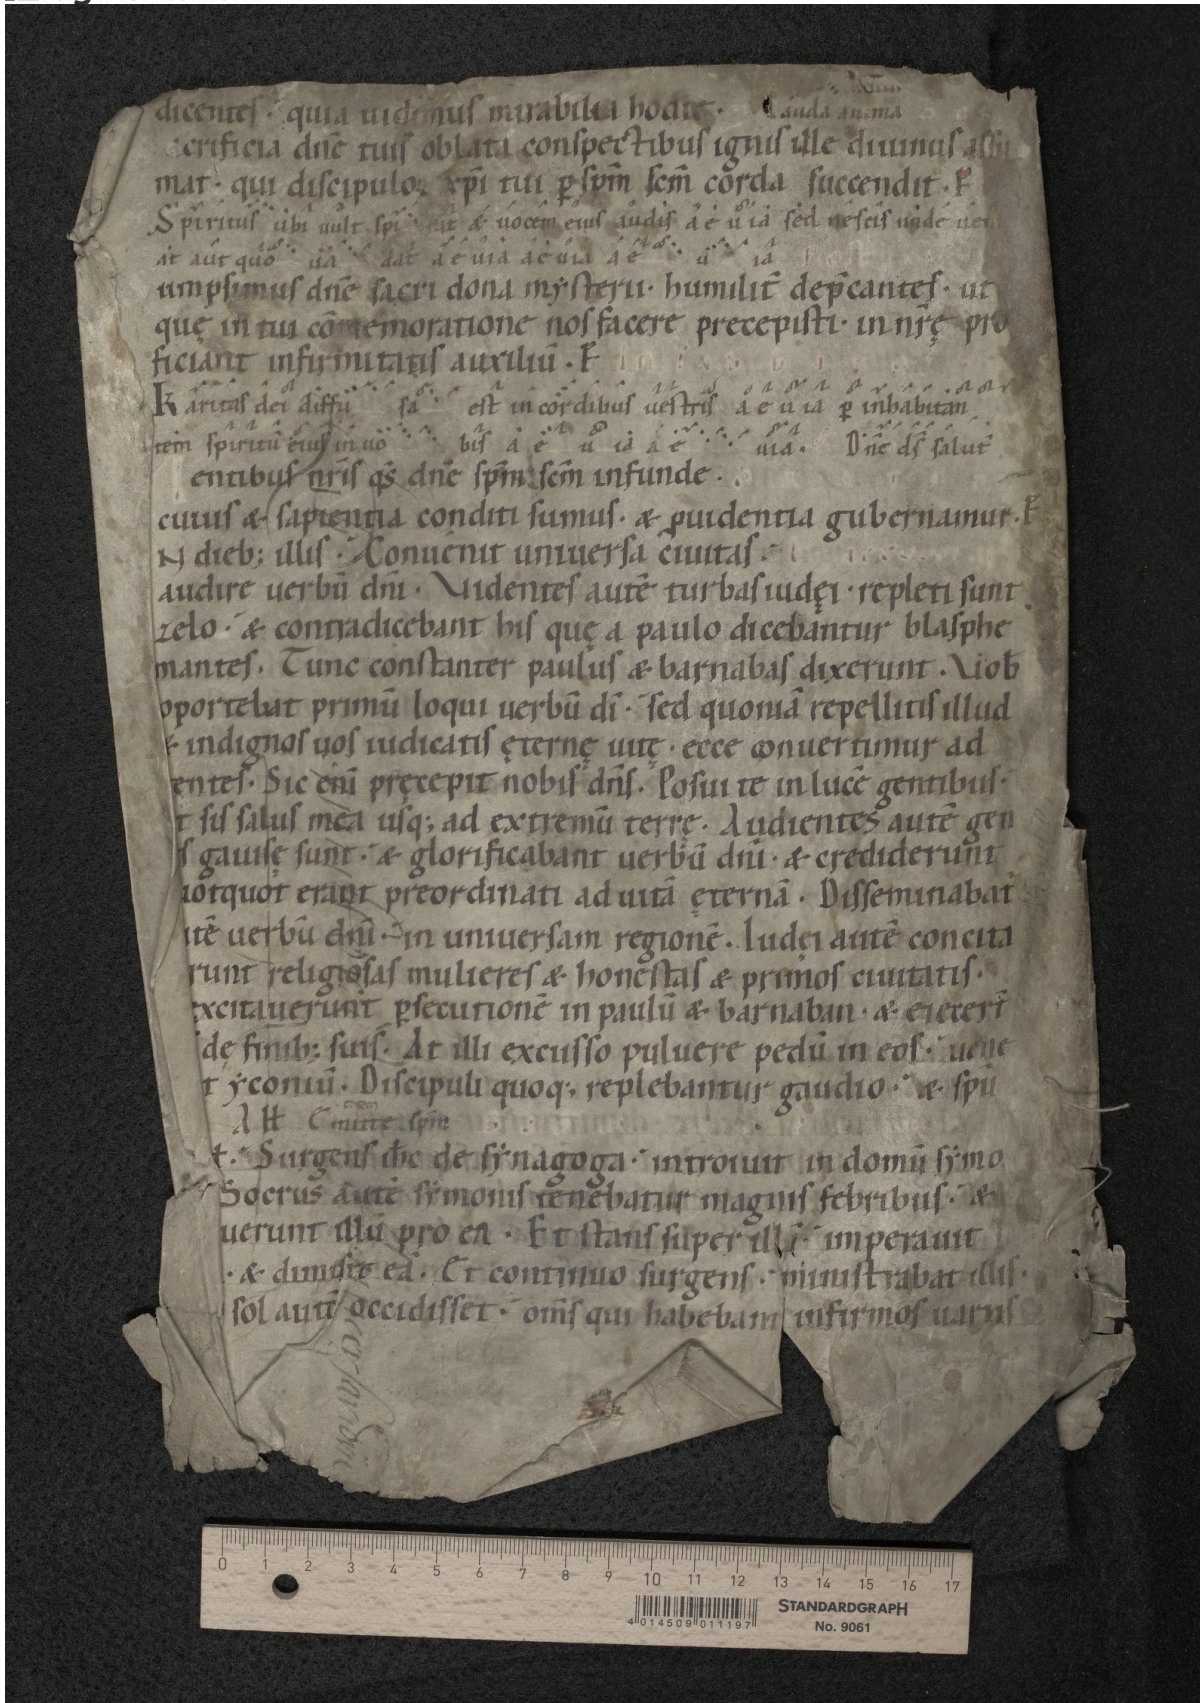 dicentes · quia uidimus mirabilia hodie · Lauda anima
acrificia dnē tuis oblata conspectibus ignis ille diuinus assu
mat · qui discipuloꝝ xp̄i tui ꝑ sp̄m sc̄m corda succendit · F
Spiritus ubi uult spi rat & uocem eius audis a e u ia sed nescis unde ueni
at aut quo ua dat a e u ia a e u ia a e u ia
umpsimus dnē sacri dona mysterii · humilit̄ dep̄cantes · ut
quę in tui cōmemoratione nos facere precepisti · in nr̄ę pro
ficiant infirmitatis auxiliū · F
Karitas dei diffu sa est in cordibus uestris a e u ia ꝑ inhabitan
tem spiritū eius in uo bis a e u ia a e uia · Dnē ds̄ salut̄
entibus nr̄is qs̄ dnē sp̄m sc̄m infunde ·
cuius & sapientia conditi sumus · & ꝓuidentia gubernamur · F
N dieb; illis · Conuenit uniuersa ciuitas ·
audire uerbū dnī · Videntes autē turbas iudęi · repleti sunt
zelo · & contradicebant his quę a paulo dicebantur blasphe
mantes · Tunc constanter paulus & barnabas dixerunt · Uob̄
oportebat primū loqui uerbū dī · sed quoniā repellitis illud
& indignos uos iudicatis ęternę uitę · ecce conuertimur ad
entes · Sic enī pręcepit nobis dns̄ · Posui te in lucē gentibus ·
t sis salus mea usq; ad extremū terrę · Audientes autē gen
s gauisę sunt · & glorificabant uerbū dnī · & crediderunt
uotquot erant preordinati ad uitā ęternā · Disseminabat̄
utē uerbū dnī · in uniuersam regionē · Iudęi autē concita
runt religiosas mulieres & honestas & primos ciuitatis ·
excitauerunt ꝑsecutionē in paulū & barnaban · & eiecer̄t
de finib; suis · At illi excusso puluere pedū in eos · uene
t yconiū · Discipuli quoq; replebantur gaudio · & spū
All Emitte spm̄
t · Surgens ih̄c de synagoga · introiuit in domū symo
Socrus autē symonis tenebatur magnis febribus · &
uerunt illū pro ea · Et stans super illā · imperauit
· & dimisit eā · Et continuo surgens · ministrabat illis ·
sol autē occidisset · om̄s qui habebant infirmos uariis